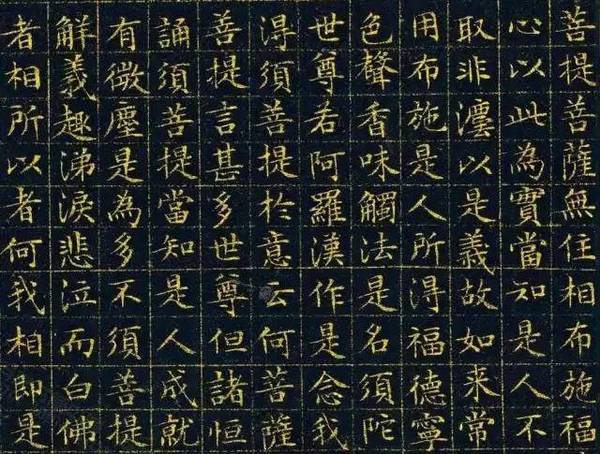 菩提菩薩無住相布施福
心以此為實當知是人不
取非灋以是義故如来常
用布施是人所淂福德寧
色聲香味觸法是名須陀
世尊若阿羅漢作是念我
淂須菩提於意云何菩薩
菩提言甚多世尊但諸恒
誦須菩提當知是人成就
有微塵是為多不須菩提
解義趣涕淚悲泣而白佛
者相所以者何我相即是